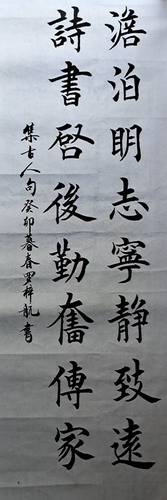 澹泊明志寧静致遠
詩書啓後勤奮傳家
集古人句癸卯暮春罗梓航書